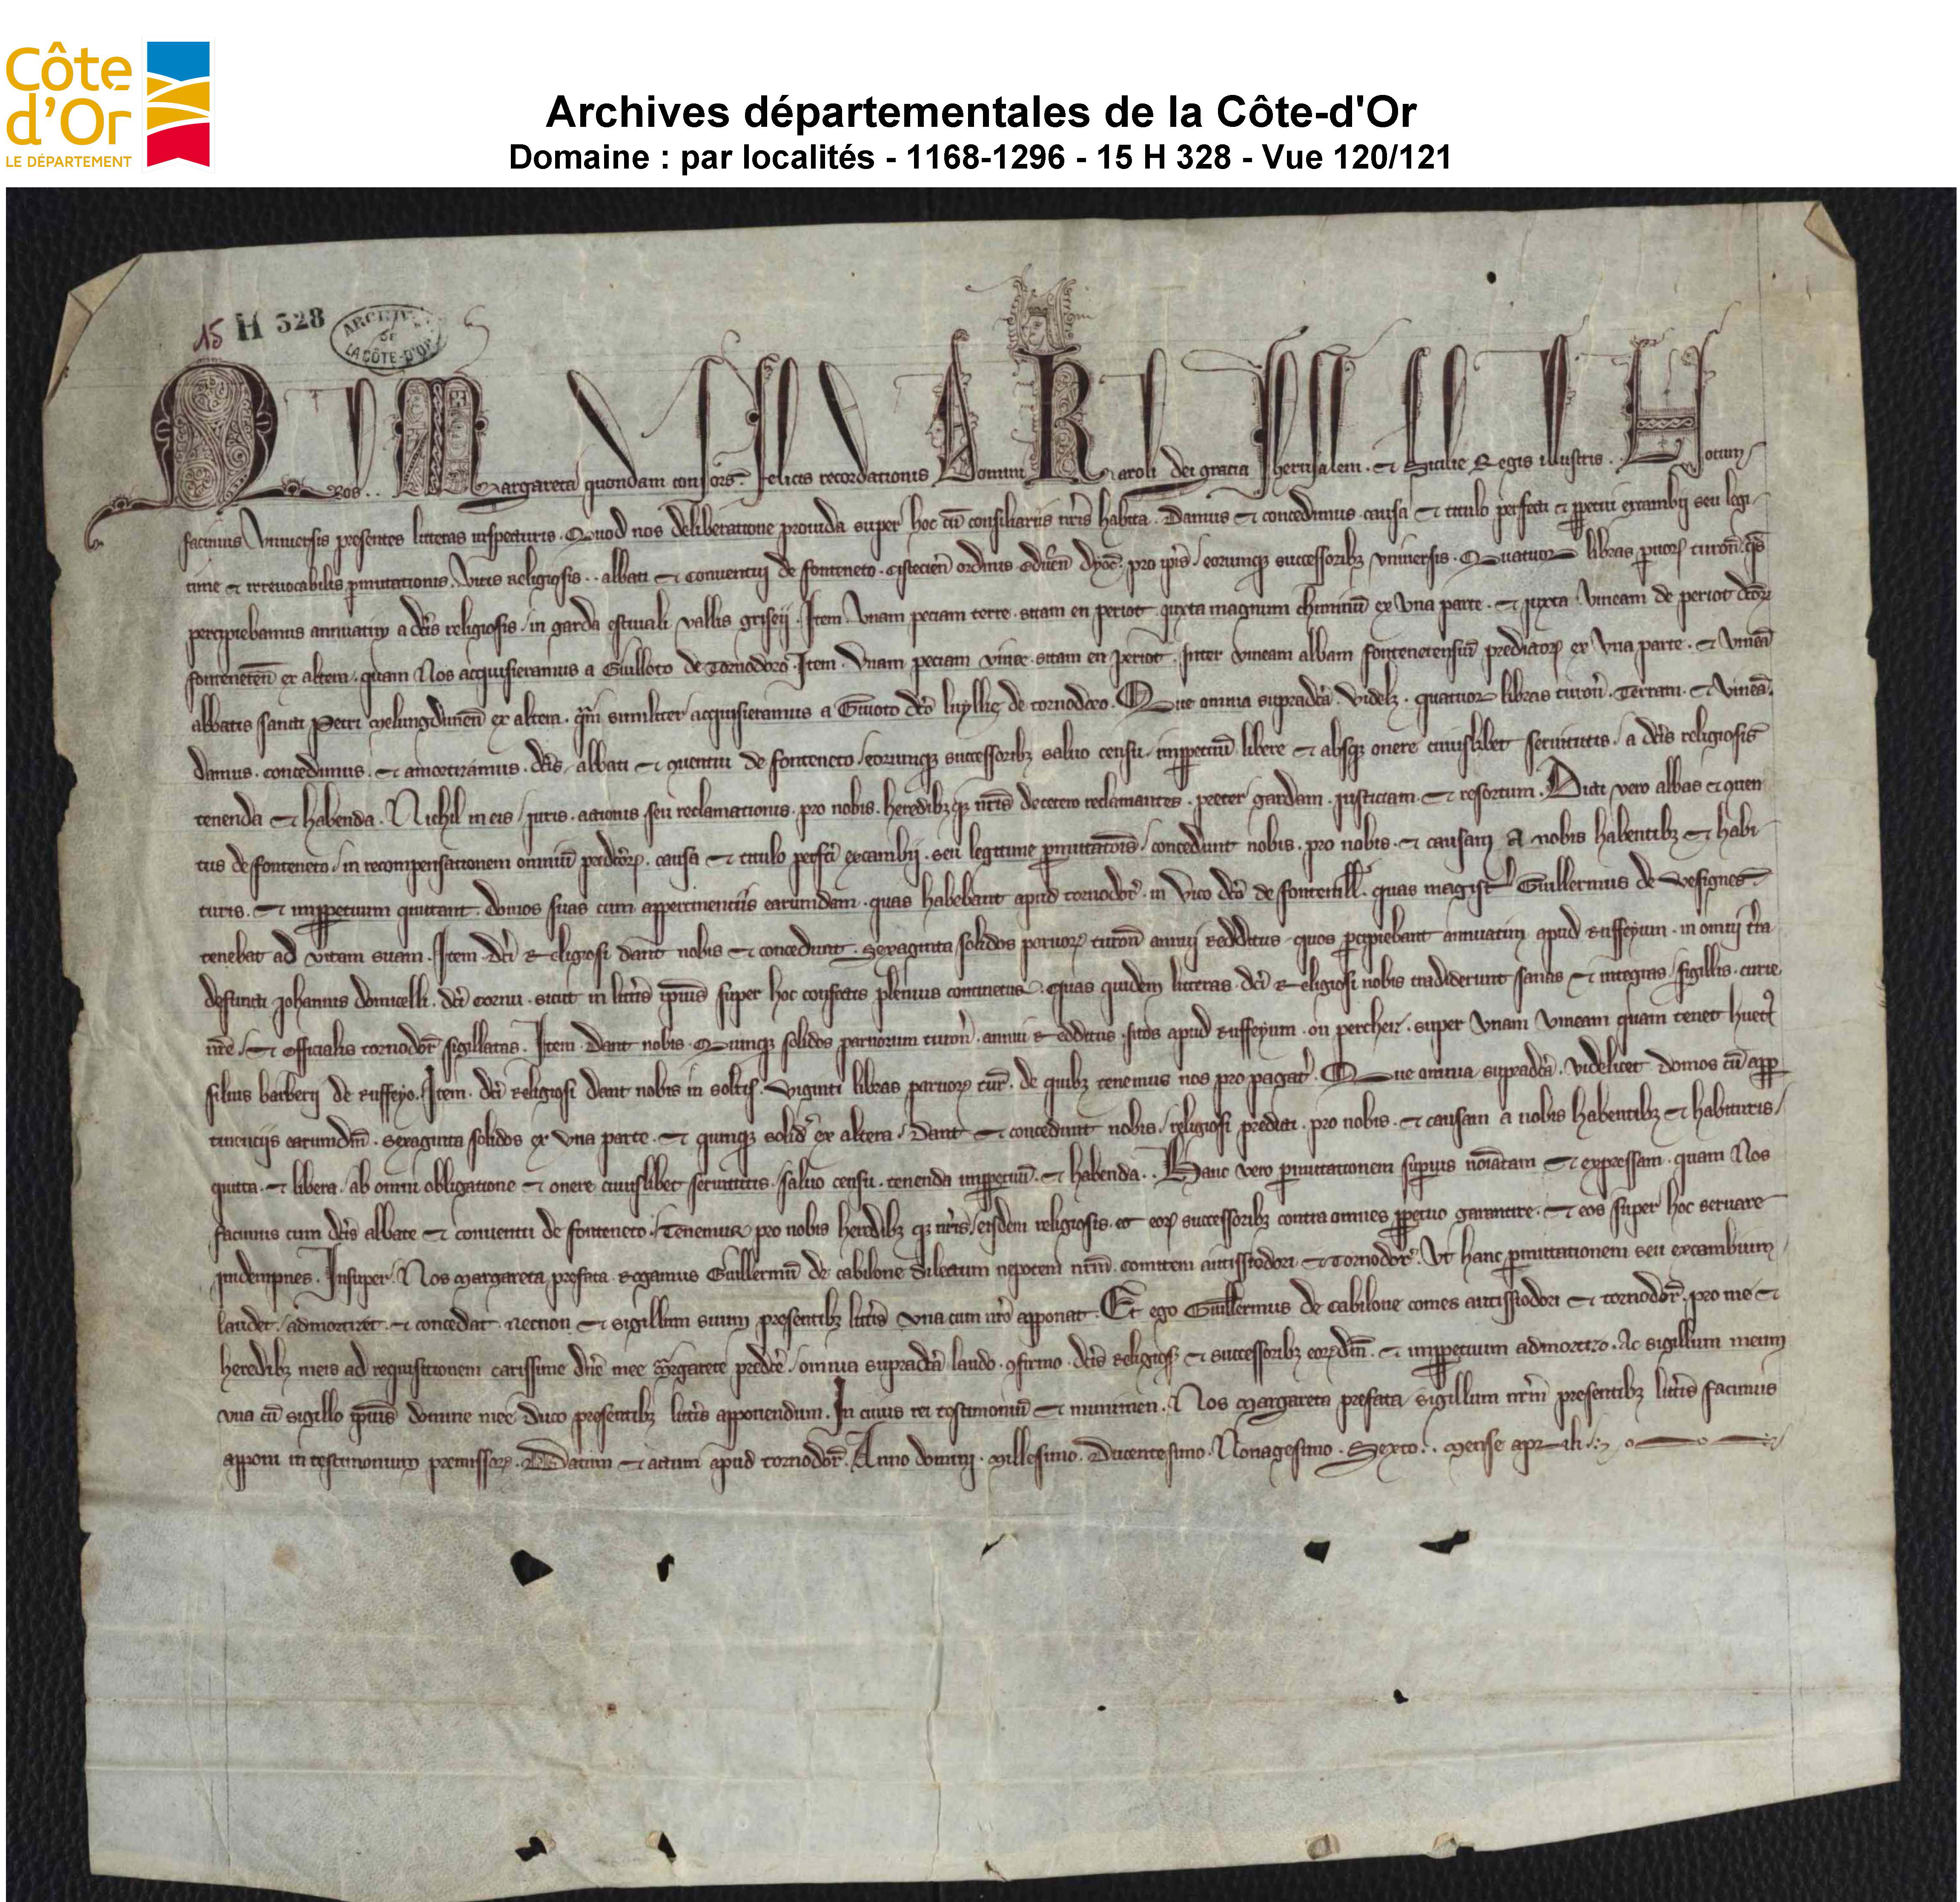 Côte
d'Or
LE DÉPARTEMENT
Archives départementales de la Côte-d'Or
Domaine : par localités - 1168-1296 - 15 H 328 - Vue 120/121
15 H 328
ARCHIVES
DE
LA CÔTE-D'OR
Nos . . Margareta quondam consors felicis recordationis Domini Karoli dei gracia Iherusalem . et Sicilie Regis illustris . . Notum
facimus Vniuersis presentes litteras inspecturis . Quod nos deliberatione prouida super hoc cū consiliariis nr̄is habita . Damus et concedimus causa et titulo perfecti et ꝑpetui excambij seu legi
time et irreuocabilis ꝑmutationis . Viris religiosis . . abbati et conuentuj de fonteneto . cistercien̄ ordinis eduen̄ dyoc̄ . pro ip̄is / eorumqꝫ successoribꝫ vniuersis . Quatuor libras ꝑuorꝝ turon̄ . qs̄
percipiebamus annuatim a dc̄is religiosis / in garda estiuali vallis griseij . Item . Vnam peciam terre . sitam en periot . iuxta magnum chiminū ex Vna parte . et iuxta Vineam de periot dc̄orꝝ
fonteneten̄ ex altera . quam Nos acquisieramus a Guilloto de Tornodoro . Item . Vnam peciam vinee . sitam en periot . Inter vineam albam fontenetensiū predictorꝝ ex Vna parte . et vineā
abbatis sancti Petri melungdunen̄ ex altera . qm̄ similiter acquisieramus a Guioto dc̄o luyllie de tornodoro . Que omnia supradc̄a . Videlꝫ . quatuor libras turon̄ . Terram . et Vineā .
damus . concedimus . et amortizamus . dc̄is / abbati et ꝯuentui de fonteneto / eorumqꝫ successoribꝫ saluo censu / imꝑpetuū libere et absqꝫ onere cuiuslibet seruitutis / a dc̄is religiosis
tenenda et habenda . Nichil in eis / iuris . actionis seu reclamationis . pro nobis . heredibꝫ qꝫ nr̄is decetero reclamantes . preter gardam . iusticiam . et resortum . Dicti vero abbas et ꝯuen
tus de fonteneto / in recompensationem omniū predc̄orꝝ . causa et titulo perfc̄i excambij . seu legitime ꝑmutacōis / concedunt nobis . pro nobis . et causam A nobis habentibꝫ et habi
turis . et imꝑpetuum quittant . domos suas cum appertinentiis earumdam . quas habebant apud tornodor̄ . in Vico dc̄o de fontenill̄ . quas magist̄ Guillermus de Vesignes
tenebat ad vitam suam . Item . dc̄i Religiosi dant nobis et concedunt . Sexaginta solidos paruorꝝ turon̄ annuj redditus / quos ꝑcipiebant annuatim apud Ruffeyum . in omnj t̄ra
defuncti Johannis domicelli . dc̄i cornu . sicut in litt̄is ip̄ius super hoc confectis plenius continetur . quas quidem litteras . dc̄i Religiosi nobis tradiderunt sanas et integras / sigillis . curie
nr̄e / et officialis tornodor̄ sigillatas . Item . Dant nobis . Quinqꝫ solidos paruorum turon̄ . annui Redditus . sitos apud Ruffeyum . on percheir . super Vnam Vineam quam tenet huet
filius barberij de Ruffeyo . Item . dc̄i Religiosi dant nobis in soltis . Viginti libras paruorꝝ tur̄ . de quibꝫ tenemus nos pro pagat̄ . Que omnia supradc̄a . videlicet domos cū app̄
tinenciis earumdm̄ . sexaginta solidos ex Vna parte . et quinqꝫ solid̄ ex altera / Dant et concedunt nobis / religiosi predicti . pro nobis . et causam a nobis habentibꝫ et habituris /
quitta . et libera . ab omni obligatione et onere cuiuslibet seruitutis . saluo censu . tenenda imꝑpetuū . et habenda . . Hanc vero ꝑmutationem suꝑius noīatam et expressam . quam Nos
facimus cum dc̄is abbate et conuentu de fonteneto . Tenemur pro nobis heredibꝫ qꝫ nr̄is / eisdem religiosis . et eorꝝ successoribꝫ contra omnes ꝑpetuo garantire . et eos super hoc seruare
indempnes . Insuper . Nos margareta prefata . Rogamus Guillermū de cabilone dilectum nepotem nr̄m . comitem autissiodori et Tornodor̄ . Vt hanc ꝑmutationem seu excambium
laudet / admortizet . et concedat . necnon et sigillum suum presentibꝫ litt̄is vna cum nr̄o apponat . Et ego Guillermus de cabilone comes autissiodori et tornodor̄ . pro me et
heredibꝫ meis ad requisitionem carissime dn̄e mee Mrgarete predc̄e / omnia supradc̄a laudo . ꝯfirmo . dc̄is Religiosꝭ et successoribꝫ eorꝝdm̄ . et imꝑpetuum admortizo . Ac sigillum meum
vna cū sigillo ip̄ius domine mee duco presentibꝫ litt̄is apponendum . In cuius rei testimoniū et munimen . Nos margareta prefata sigillum nr̄m presentibꝫ litt̄is facimus
apponi in testimonium premissorꝝ . Datum et actum apud tornodor̄ . Anno domini . Millesimo . Ducentesimo . Nonagesimo . Sexto . . mense aprili .